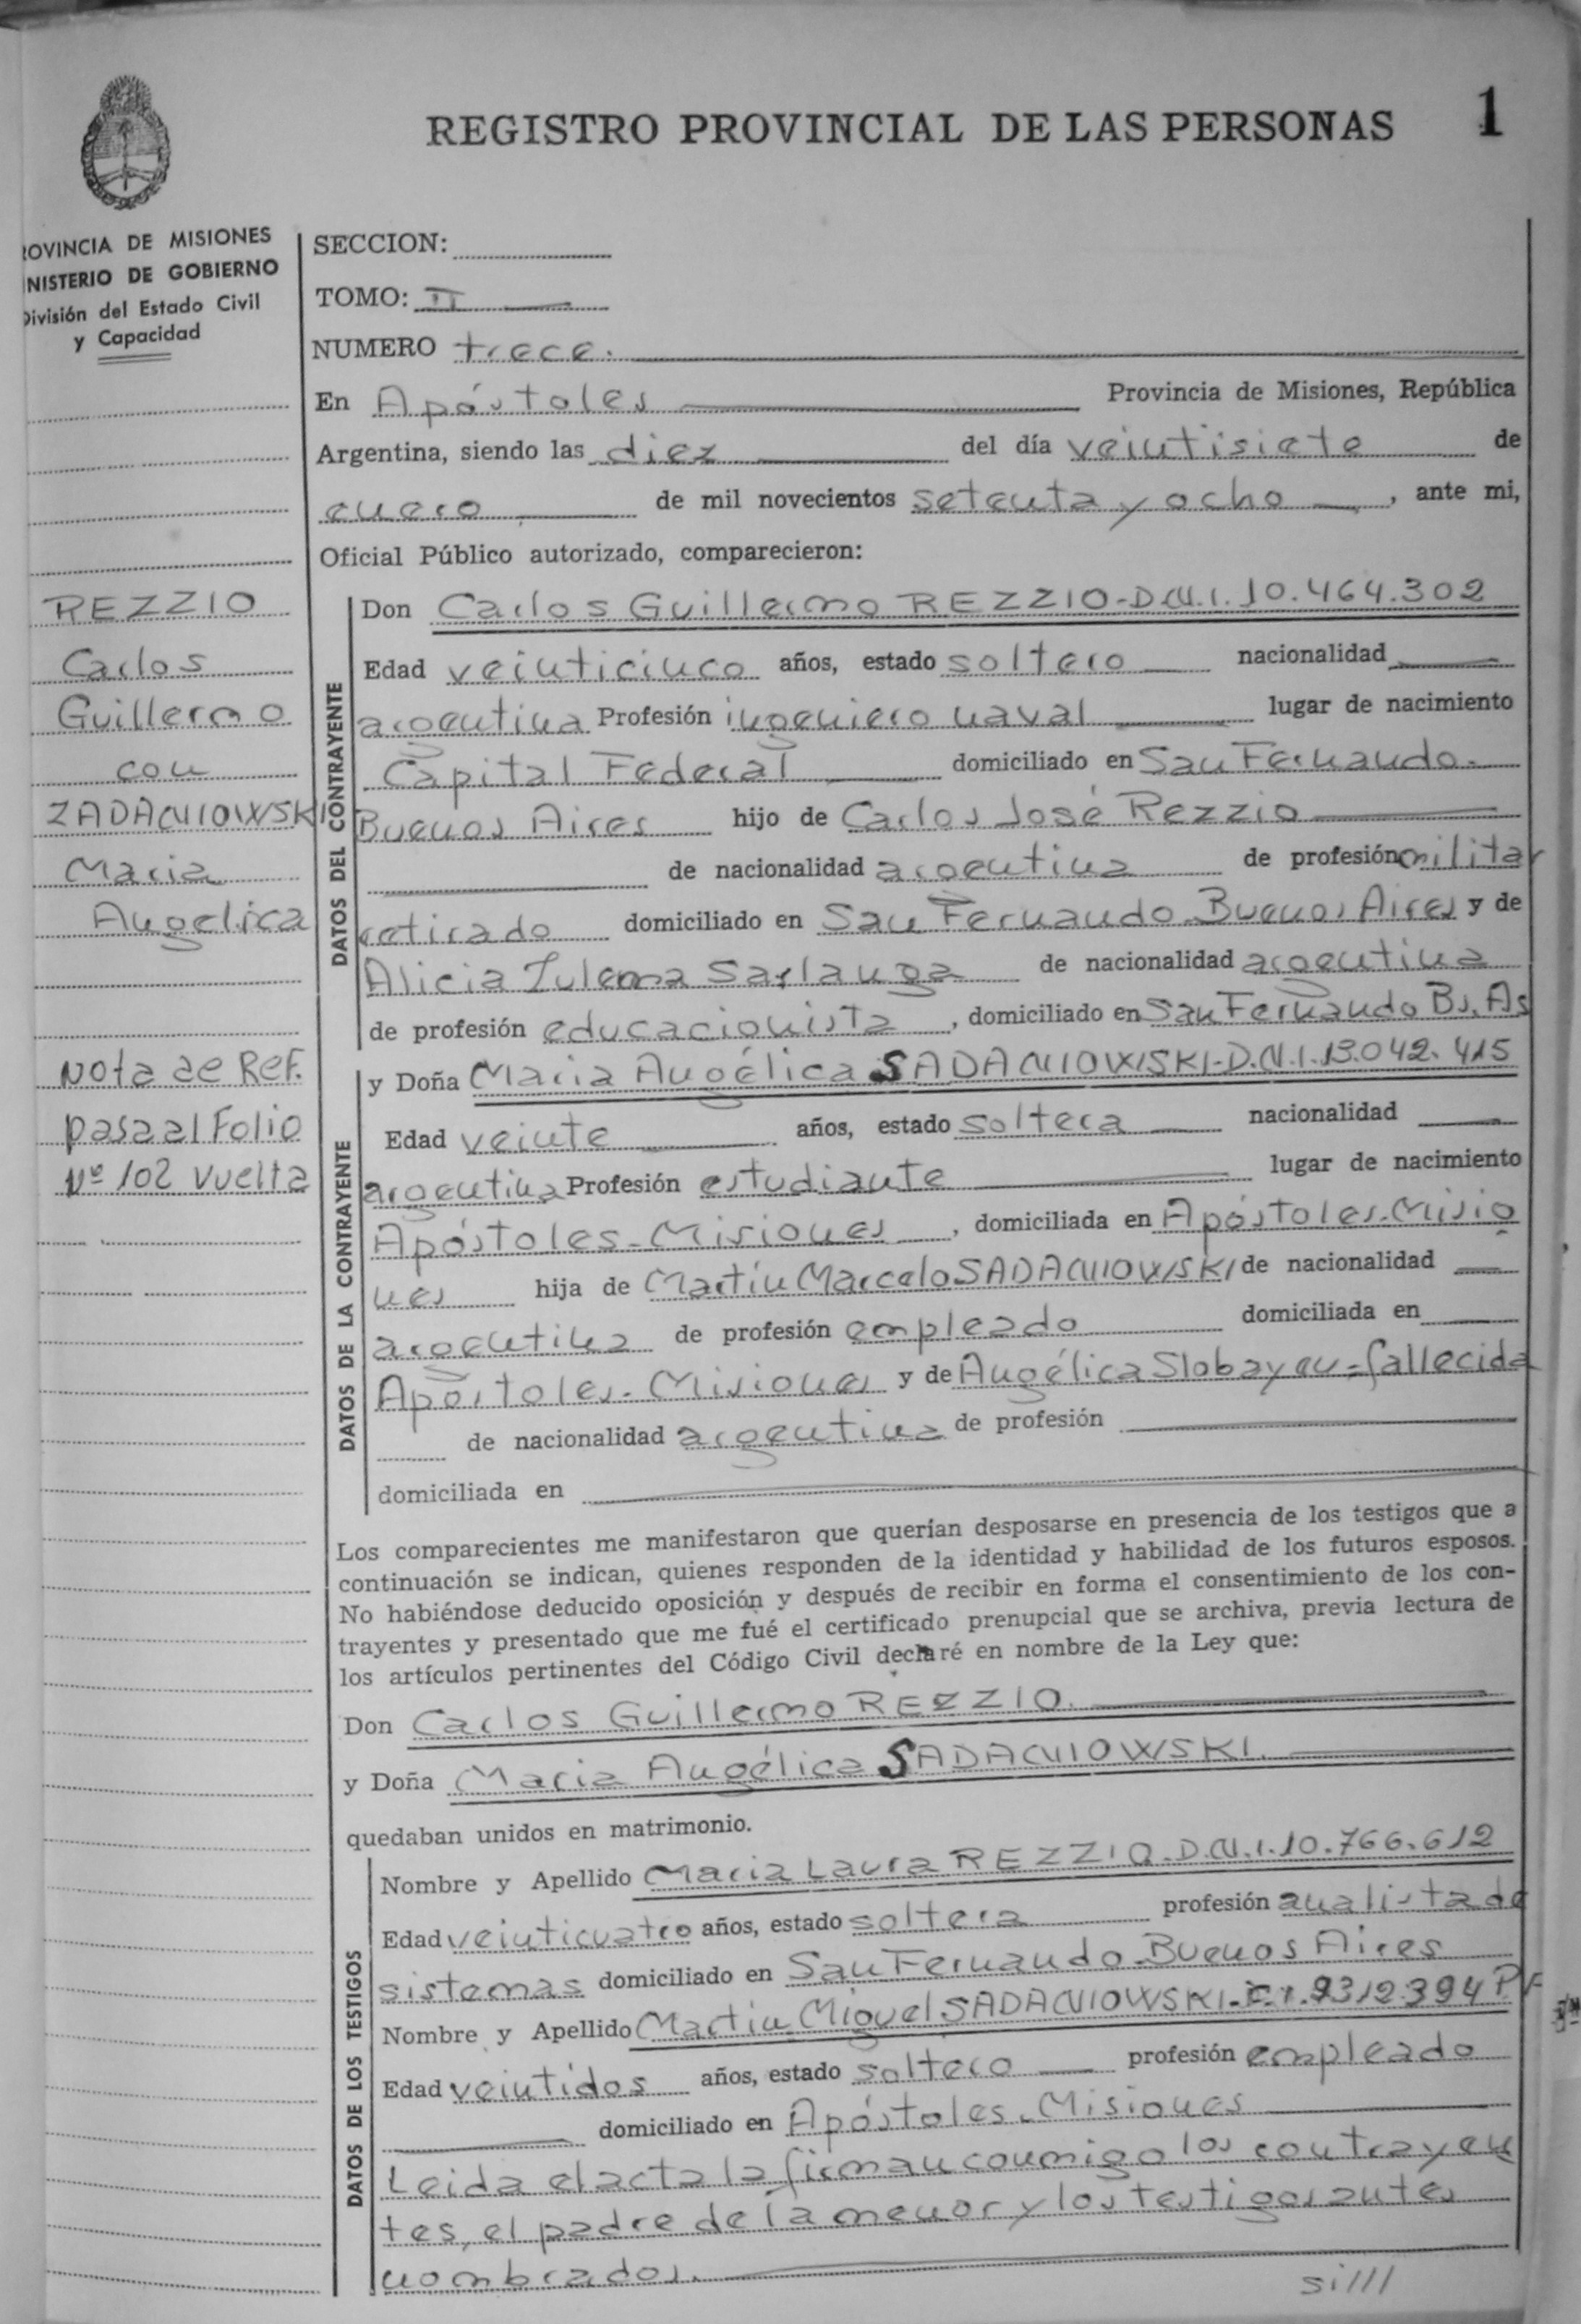 REGISTRO PROVINCIAL DE LAS PERSONAS 1
ROVINCIA DE MISIONES
NISTERIO DE GOBIERNO
División del Estado Civil
y Capacidad
SECCION:
TOMO: II
NUMERO trece.
En Apóstoles Provincia de Misiones, República
Argentina, siendo las diez del día veintisiete de
enero de mil novecientos setenta y ocho, ante mi,
Oficial Público autorizado, comparecieron:
REZZIO
Carlos
Guillermo
con
ZADANIOWSKI
Maria
Angelica
Nota de Ref.
pasa al Folio
Nº 102 vuelta
DATOS DEL CONTRAYENTE
Don Carlos Guillermo REZZIO-D.N.I.10.464.302
Edad veinticinco años, estado soltero nacionalidad
argentina Profesión ingeniero naval lugar de nacimiento
Capital Federal domiciliado en San Fernando.
Buenos Aires hijo de Carlos José Rezzio
de nacionalidad argentina de profesión militar
retirado domiciliado en San Fernando Buenos Aires y de
Alicia Zulema Sarlanga de nacionalidad argentina
de profesión educacionista, domiciliado en San Fernando Bs. As
DATOS DE LA CONTRAYENTE
y Doña Maria Angélica SADANIOWSKI-D.N.I.13.042.415
Edad veinte años, estado soltera nacionalidad
argentina Profesión estudiante lugar de nacimiento
Apóstoles-Misiones, domiciliada en Apóstoles-Misio
nes hija de Martín Marcelo SADANIOWSKI de nacionalidad
argentina de profesión empleado domiciliada en
Apóstoles-Misiones y de Angélica Slobayen=fallecida
de nacionalidad argentina de profesión
domiciliada en
Los comparecientes me manifestaron que querían desposarse en presencia de los testigos que a
continuación se indican, quienes responden de la identidad y habilidad de los futuros esposos.
No habiéndose deducido oposición y después de recibir en forma el consentimiento de los con-
trayentes y presentado que me fué el certificado prenupcial que se archiva, previa lectura de
los artículos pertinentes del Código Civil declaré en nombre de la Ley que:
Don Carlos Guillermo REZZIO.
y Doña Maria Angélica SADANIOWSKI.
quedaban unidos en matrimonio.
DATOS DE LOS TESTIGOS
Nombre y Apellido Maria Laura REZZIO-D.N.I.10.766.612
Edad veinticuatro años, estado soltera profesión analista de
sistemas domiciliado en San Fernando-Buenos Aires
Nombre y Apellido Martín Miguel SADANIOWSKI-C.I.9312.394 PF
Edad veintidos años, estado soltero profesión empleado
domiciliado en Apóstoles-Misiones
Leida el acta la firman conmigo los contrayen
tes, el padre de la menor y los testigos antes
nombrados.
si///